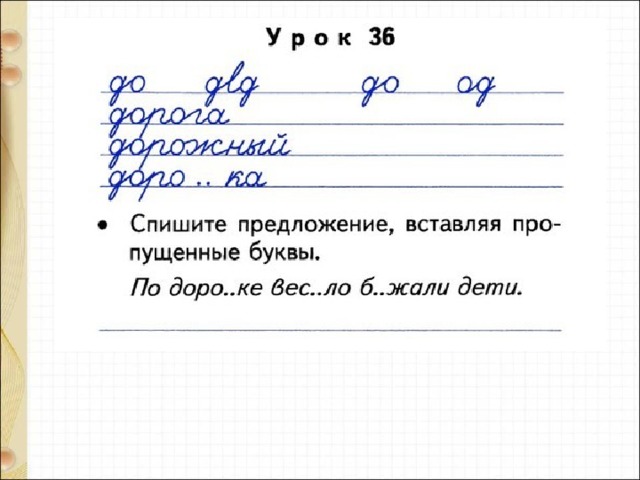 Урок 36
до двд до од
дорога
дорожный
доро .. ка
• Спишите предложение, вставляя про-
пущенные буквы.
По доро..ке вес..ло б..жали дети.